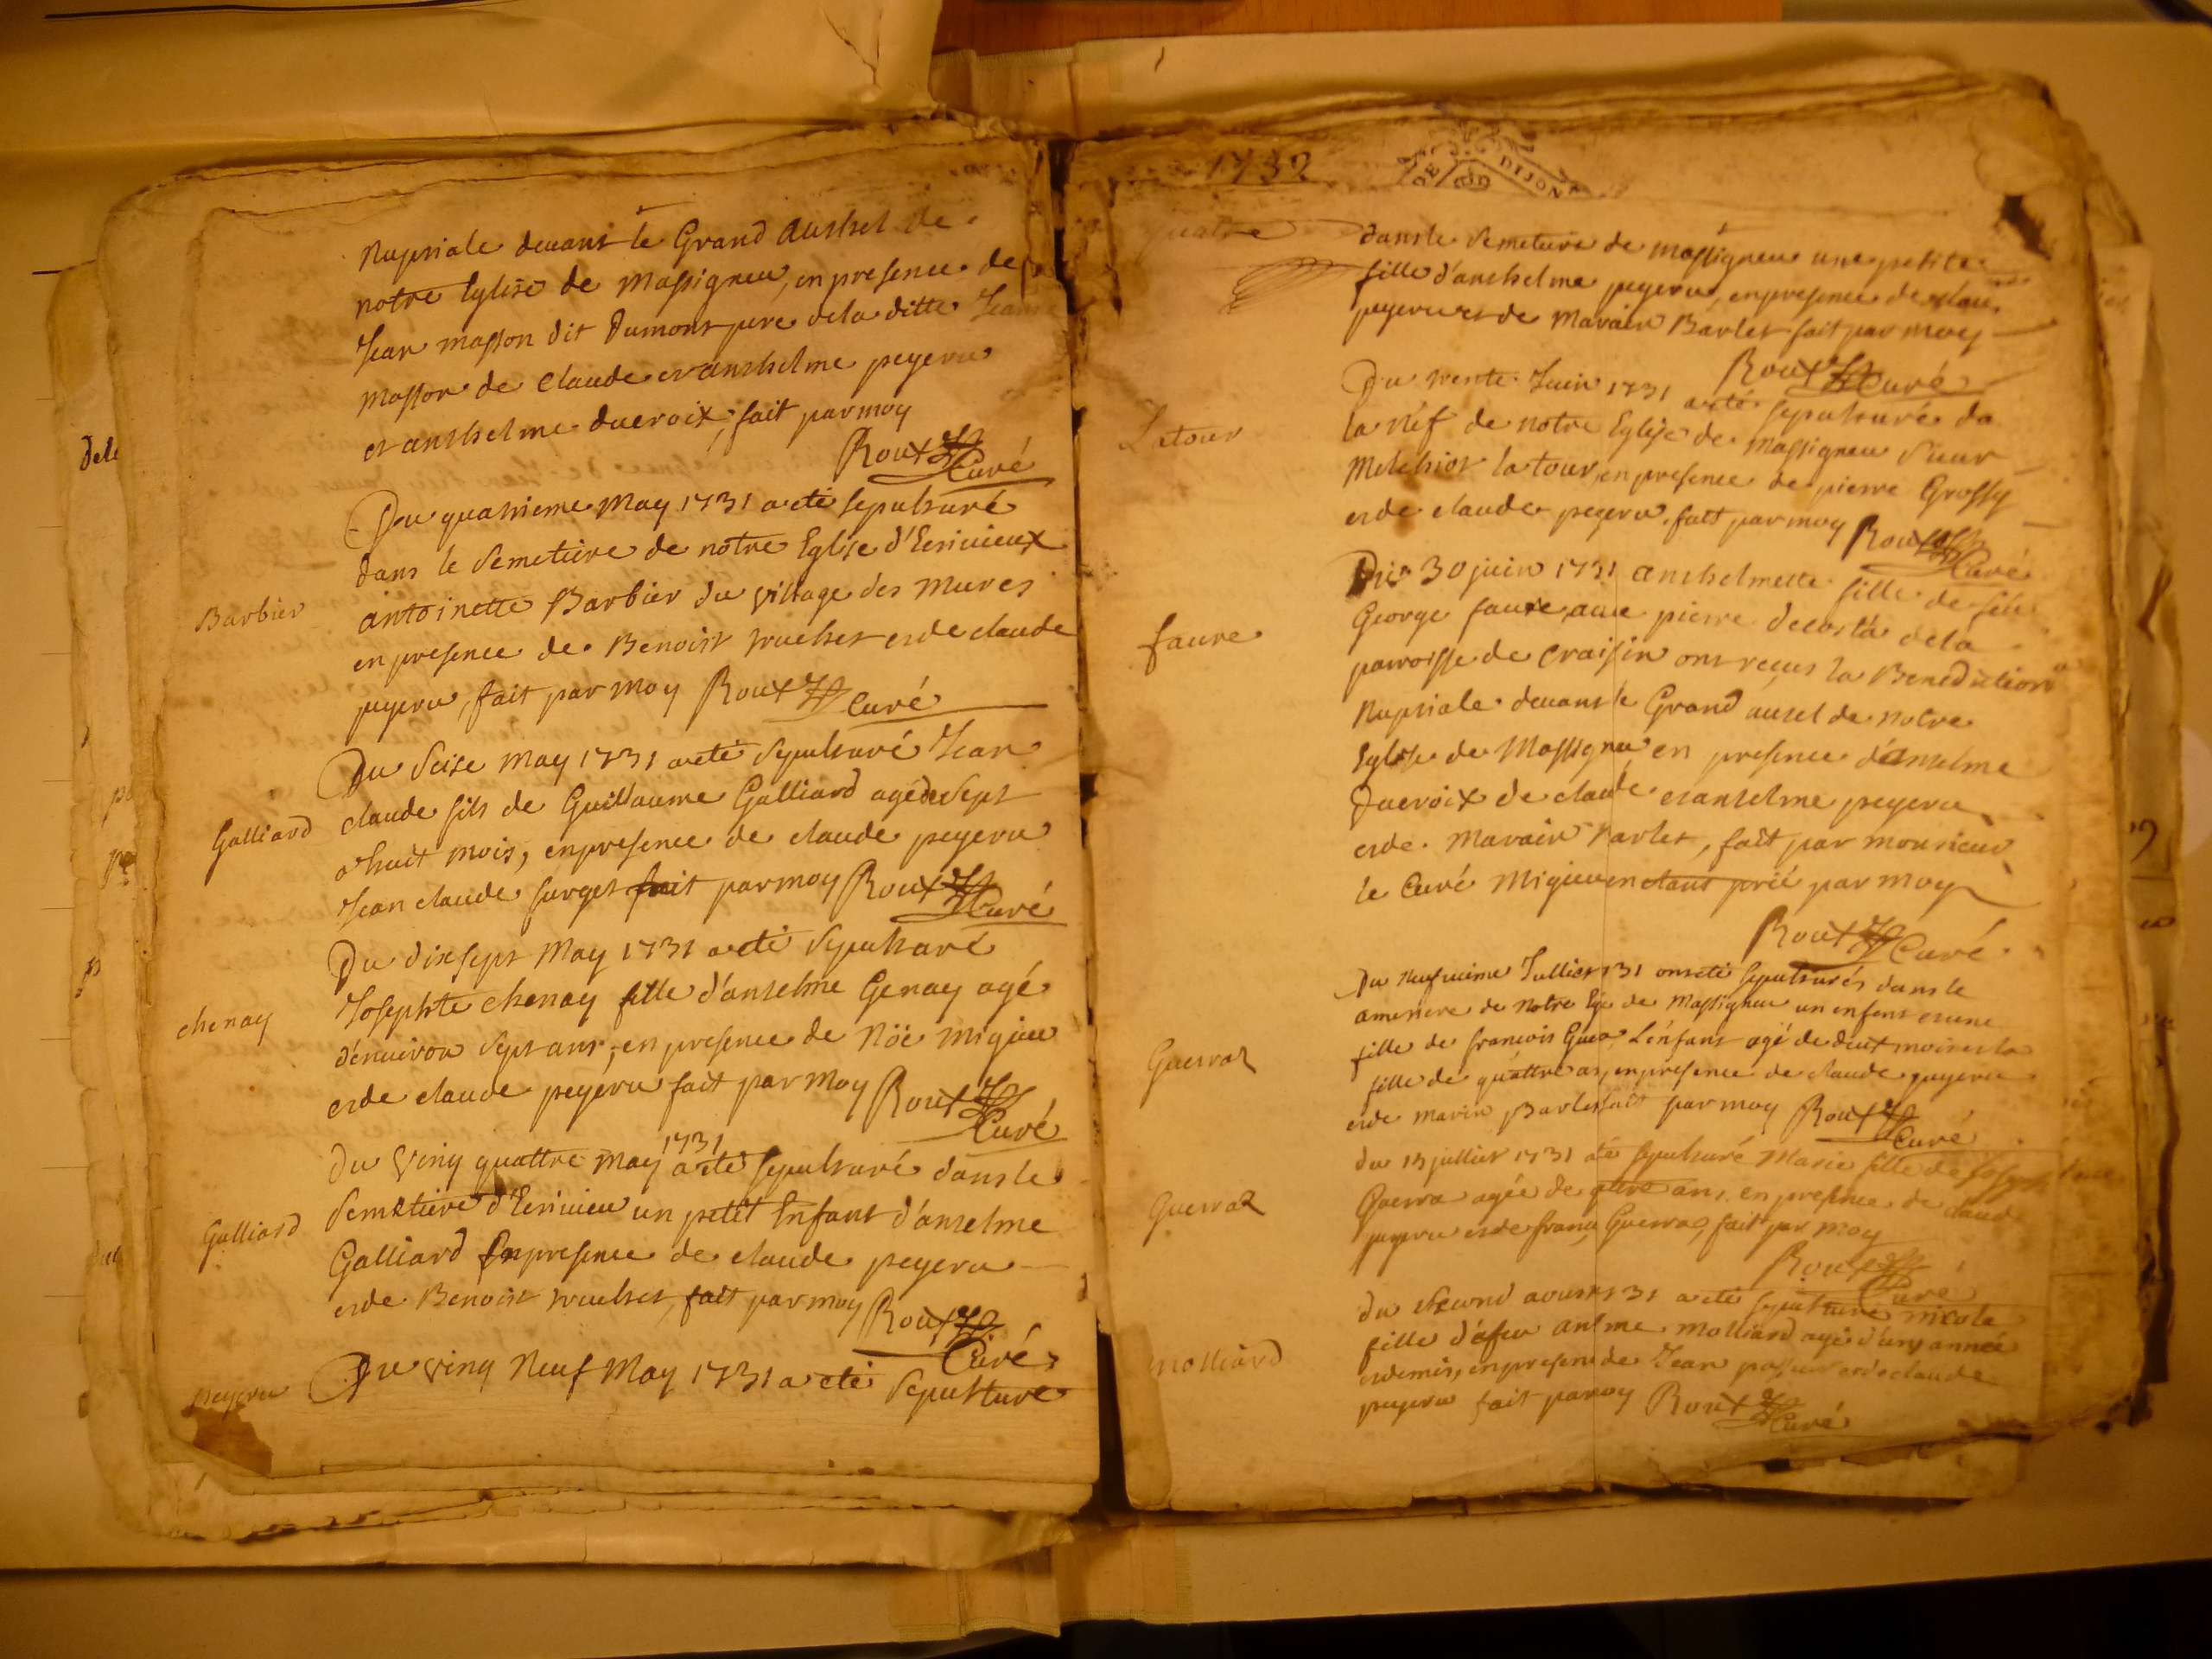 Nuptiale devant le Grand Authel de
notre Eglise de Massigneu, en presence de
Jean Masson dit Dumont pere dela ditte Jeane
Masson de Claude et Anthelme peyeru
et anthelme ducroix, fait par moy
Roux Curé
Du quatrieme May 1731 a eté sepulturé
dans le Semetiere de notre Eglise d'Ecrivieux
Barbier
antoinette Barbier du village des Mures
en presence de Benoist truchet et de claude
peyeru, fait par moy Roux Curé
Du Seise May 1731 a eté Sepulturé Jean
Galliard
claude fils de Guillaume Galliard agé de Sept
a huit mois, en presence de claude peyeru
Jean claude surget fait par moy Roux Curé
Du dixsept May 1731 a eté Sepulturé
chenay
Josephte chenay fille d'antelme Genay agé
d'environ Sept ans, en presence de Nöé Migieu
et de claude peyeru fait par moy Roux Curé
1731
du Ving quattre May a eté sepulturé dans le
Galliard
Semetiere d'Ecrivieu un petit Enfant d'antelme
Galliard En presence de claude peyeru
et de Benoist truchet, fait par moy Roux
Curé
peyeru
Du Ving Neuf May 1731 a eté Sepulture
1732
DIJON
quatre
dans le Semetiere de Massigneu une petite
fille d'anthelme peyeru, en presence de clau
peyeru et de Marain Barlet fait par moy
Roux Curé
Du trente Juin 1731 a eté sepulturé da
Latour
la Nef de notre Eglise de Massigneu Sieur
Melchior la tour, en presence de pierre Grossy
et de claude peyeru fait par moy Roux Curé
30 juin 1731 anthelmette fille de feu
faure
George faure avec pierre decosta dela
parroisse de Craisin ont reçus la Benediction
Nuptiale devant le Grand autel de notre
Eglise de Massigneu en presence d'Antelme
Ducroix de claude et antelme peyeru
et de Marain Barlet, fait par monsieur
le Curé Migieu en etant prié par moy
Roux Curé
Du Neufvieme Jullier 1731 ont eté sepulturés dans le
de Notre Egse de Massigneu un enfant et une
Guerraz
fille de francois Guera, L'enfant agé de deux mois et la
fille de quattre as, en presence de claude peyeru
et de Marin Barlet fait par moy Roux Curé
du 15 jullier 1731 a eté sepulturé Marie fille de Joseph
Guerraz
Guerra agée de ans en presence de claude
peyeru et de franc Guerraz, fait par moy
Roux Curé
du Second aoust 1731 a eté sepulture nicole
Molliard
fille d'afeu antme Molliard agé d'une année
et demis, en presence de Jean et de claude
peyeru fait par moy Roux Curé